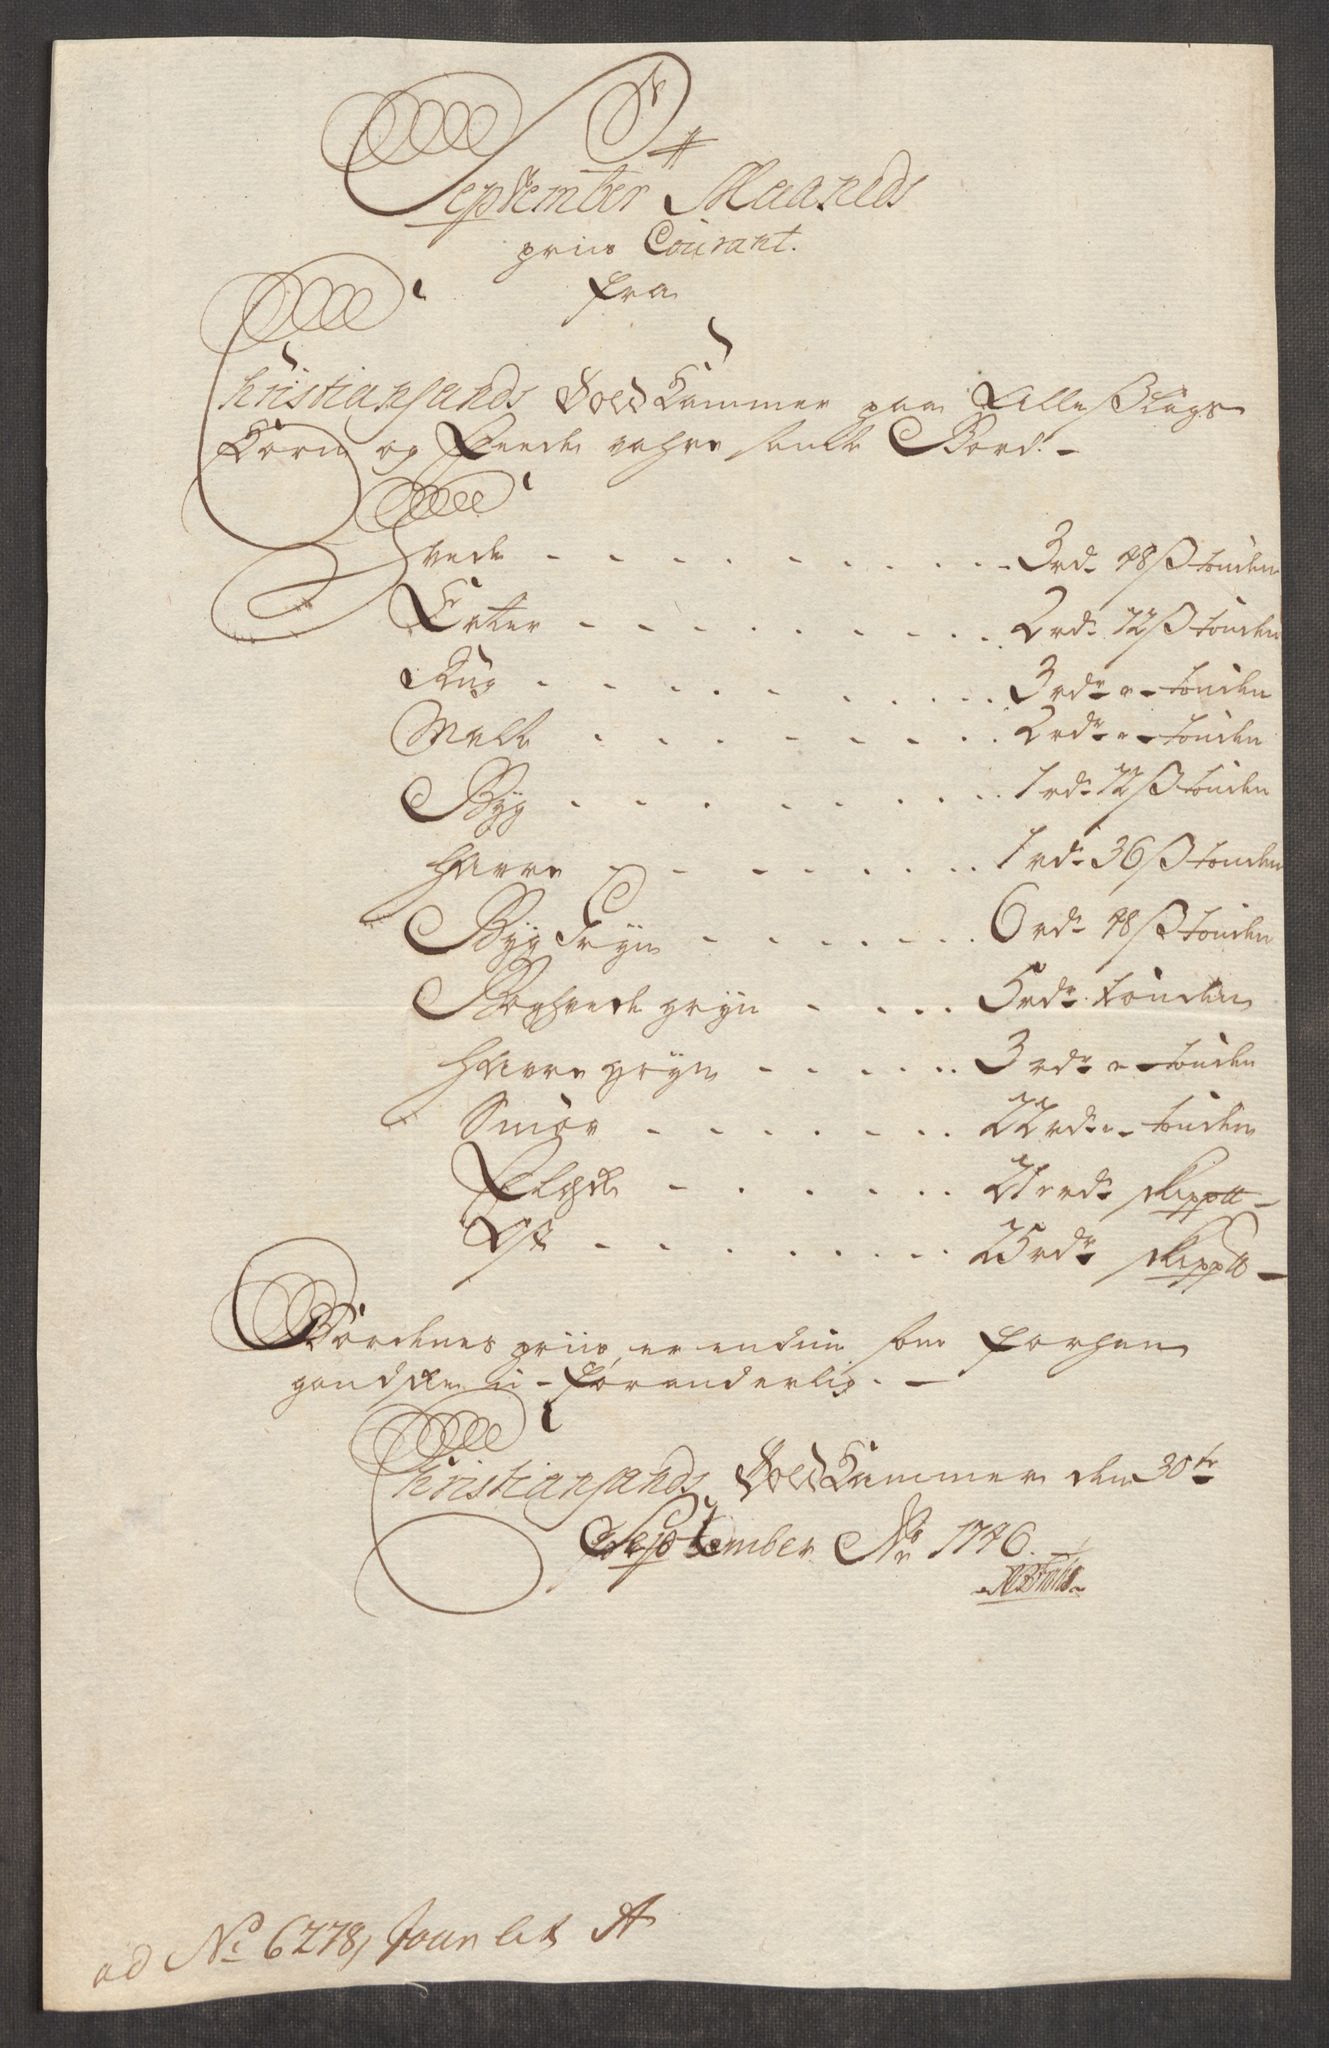 September Maaneds
priis Courant.
fra
Christiansands Told Kammer paa Alle Slags
Korn og Feede vahre samt Bord. -
Hvede - - - 3 rdr 48 ß tønden
Erter - - - 2 rdr 72 ß tønden
Rug - - - 3 rdr " - tønden
Malt - - - 2 rdr " - tønden
Byg - - - 1 rdr 72 ß tønden
Havre - - - 1 rdr 36 ß tønden
Byg Gryn - - - 6 rdr 48 ß tønden
Boghvede gryn - - - 5 rdr tønden
Havre gryn - - - 3 rdr " - tønden
Smör - - - 22 rdr " - tønden
Flesk - - - 21 rdr skippd -
Ost - - - 25 rdr skippd -
Bordenes priis er endnu som forhen
gandske u-foranderlig. -
Christiansands Told Kammer den 30te
September Ao 1746.
ad No 6278, Jour lit A